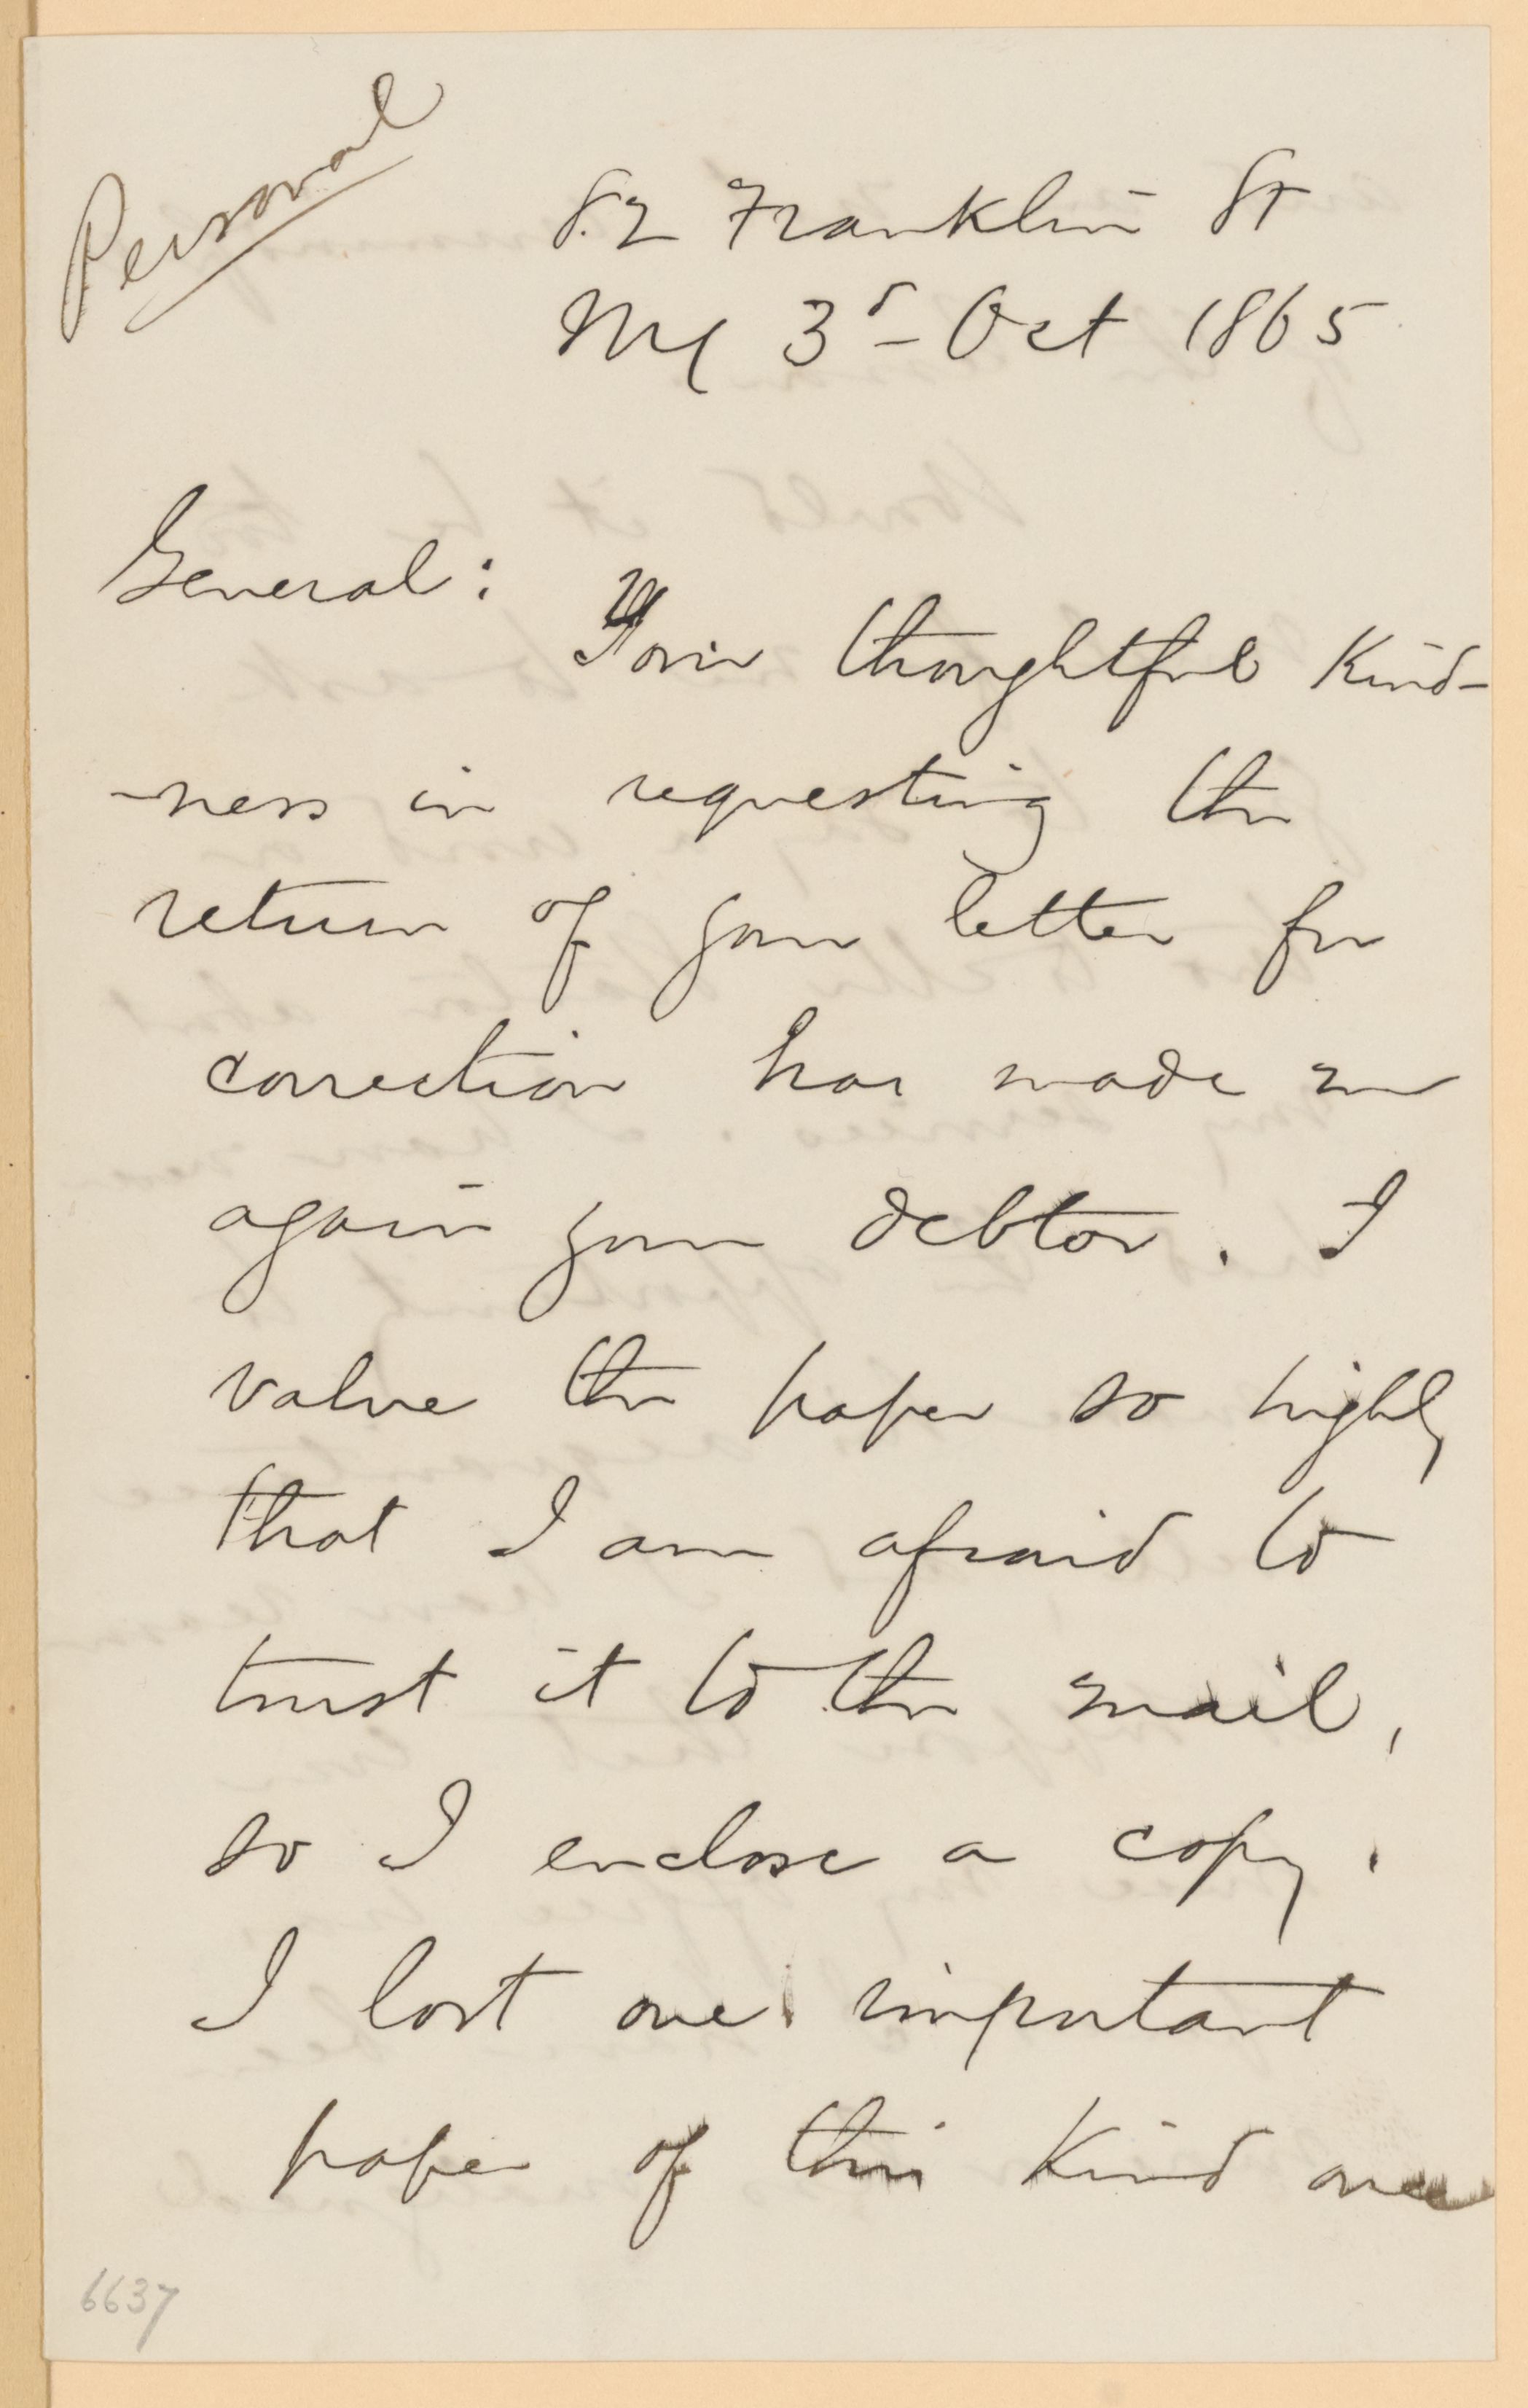 Personal
82 Franklin St
NY 3d - Oct 1865
General:
Your thoughtful Kind-
-ness in requesting the
return of your letter for
correction has made me
again your debtor. I
value the paper so highly
that I am afraid to
trust it to the mail,
so I enclose a copy.
I lost one important
paper of this Kind once
6637